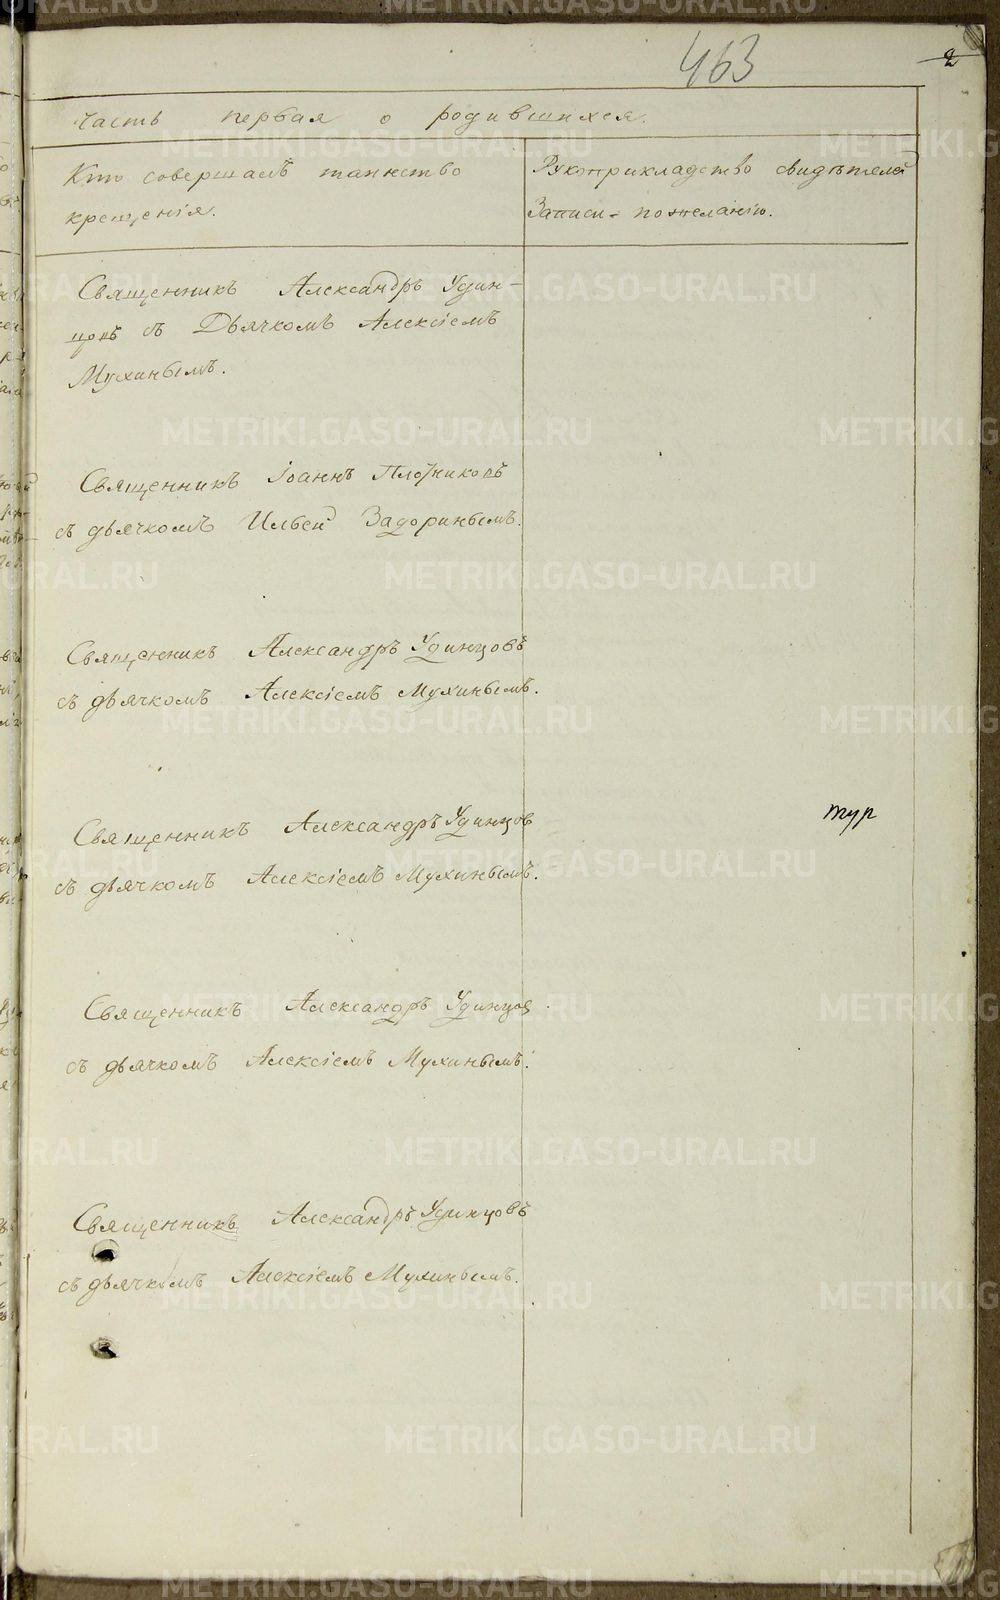 463
2
Часть первая о родившихся.
Кто совершалъ таинство
крещенія.
Рукоприкладство свидѣтелей
Записи - по желанію.
Священникъ Александръ Удин-
цовъ съ Дьячкомъ Алексіемъ
Мухинымъ.
Священникъ Іоаннъ Плотниковъ
съ дьячкомъ Ильей Задоринымъ.
Священникъ Александръ Удинцовъ
съ дьячкомъ Алексіемъ Мухинымъ.
Священникъ Александръ Удинцов
съ дьячкомъ Алексіемъ Мухинымъ.
тур
Священникъ Александръ Удинцов
съ дьячкомъ Алексіемъ Мухинымъ.
Священникъ Александръ Удинцовъ
съ дьячкомъ Алексіемъ Мухинымъ.
METRIKI.GASO-URAL.RU